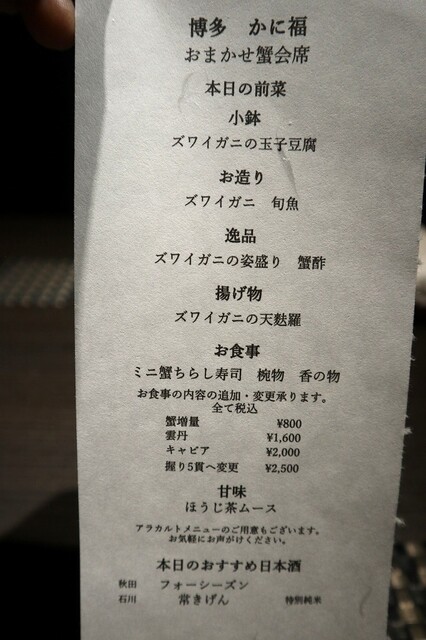 博多　かに福
おまかせ蟹会席
本日の前菜
小鉢
ズワイガニの玉子豆腐
お造り
ズワイガニ　旬魚
逸品
ズワイガニの姿盛り　蟹酢
揚げ物
ズワイガニの天麩羅
お食事
ミニ蟹ちらし寿司　椀物　香の物
お食事の内容の追加・変更承ります。
全て税込
蟹増量　¥800
雲丹　¥1,600
キャビア　¥2,000
握り5貫へ変更　¥2,500
甘味
ほうじ茶ムース
アラカルトメニューのご用意もございます。
お気軽にお声がけください。
本日のおすすめ日本酒
秋田　フォーシーズン
石川　常きげん　特別純米